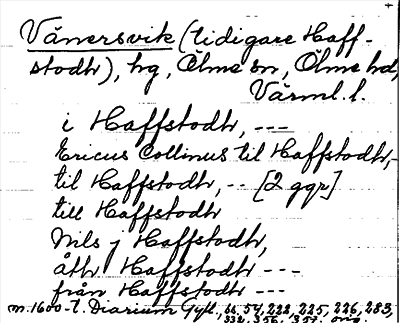 +
Vänersvik (tidigare Haff-
stodh), hg, Ölme sn, Ölme hd,
Värml. l.
i Haffstodh, ---
Ericus Collinus til Haffstodh,-
til Haffstodh, -- [2 ggr]
till Haffstodh
Nils j Haffstodh,
åth Haffstodh ---
från Haffstodh ---
m. 1600-t. Diarium Gyll., 54, 222, 225, 226, 283,
332, 356, 357. orig.